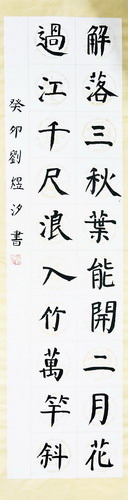 解落三秋葉能開二月花
過江千尺浪入竹萬竿斜
癸卯劉煜汐書